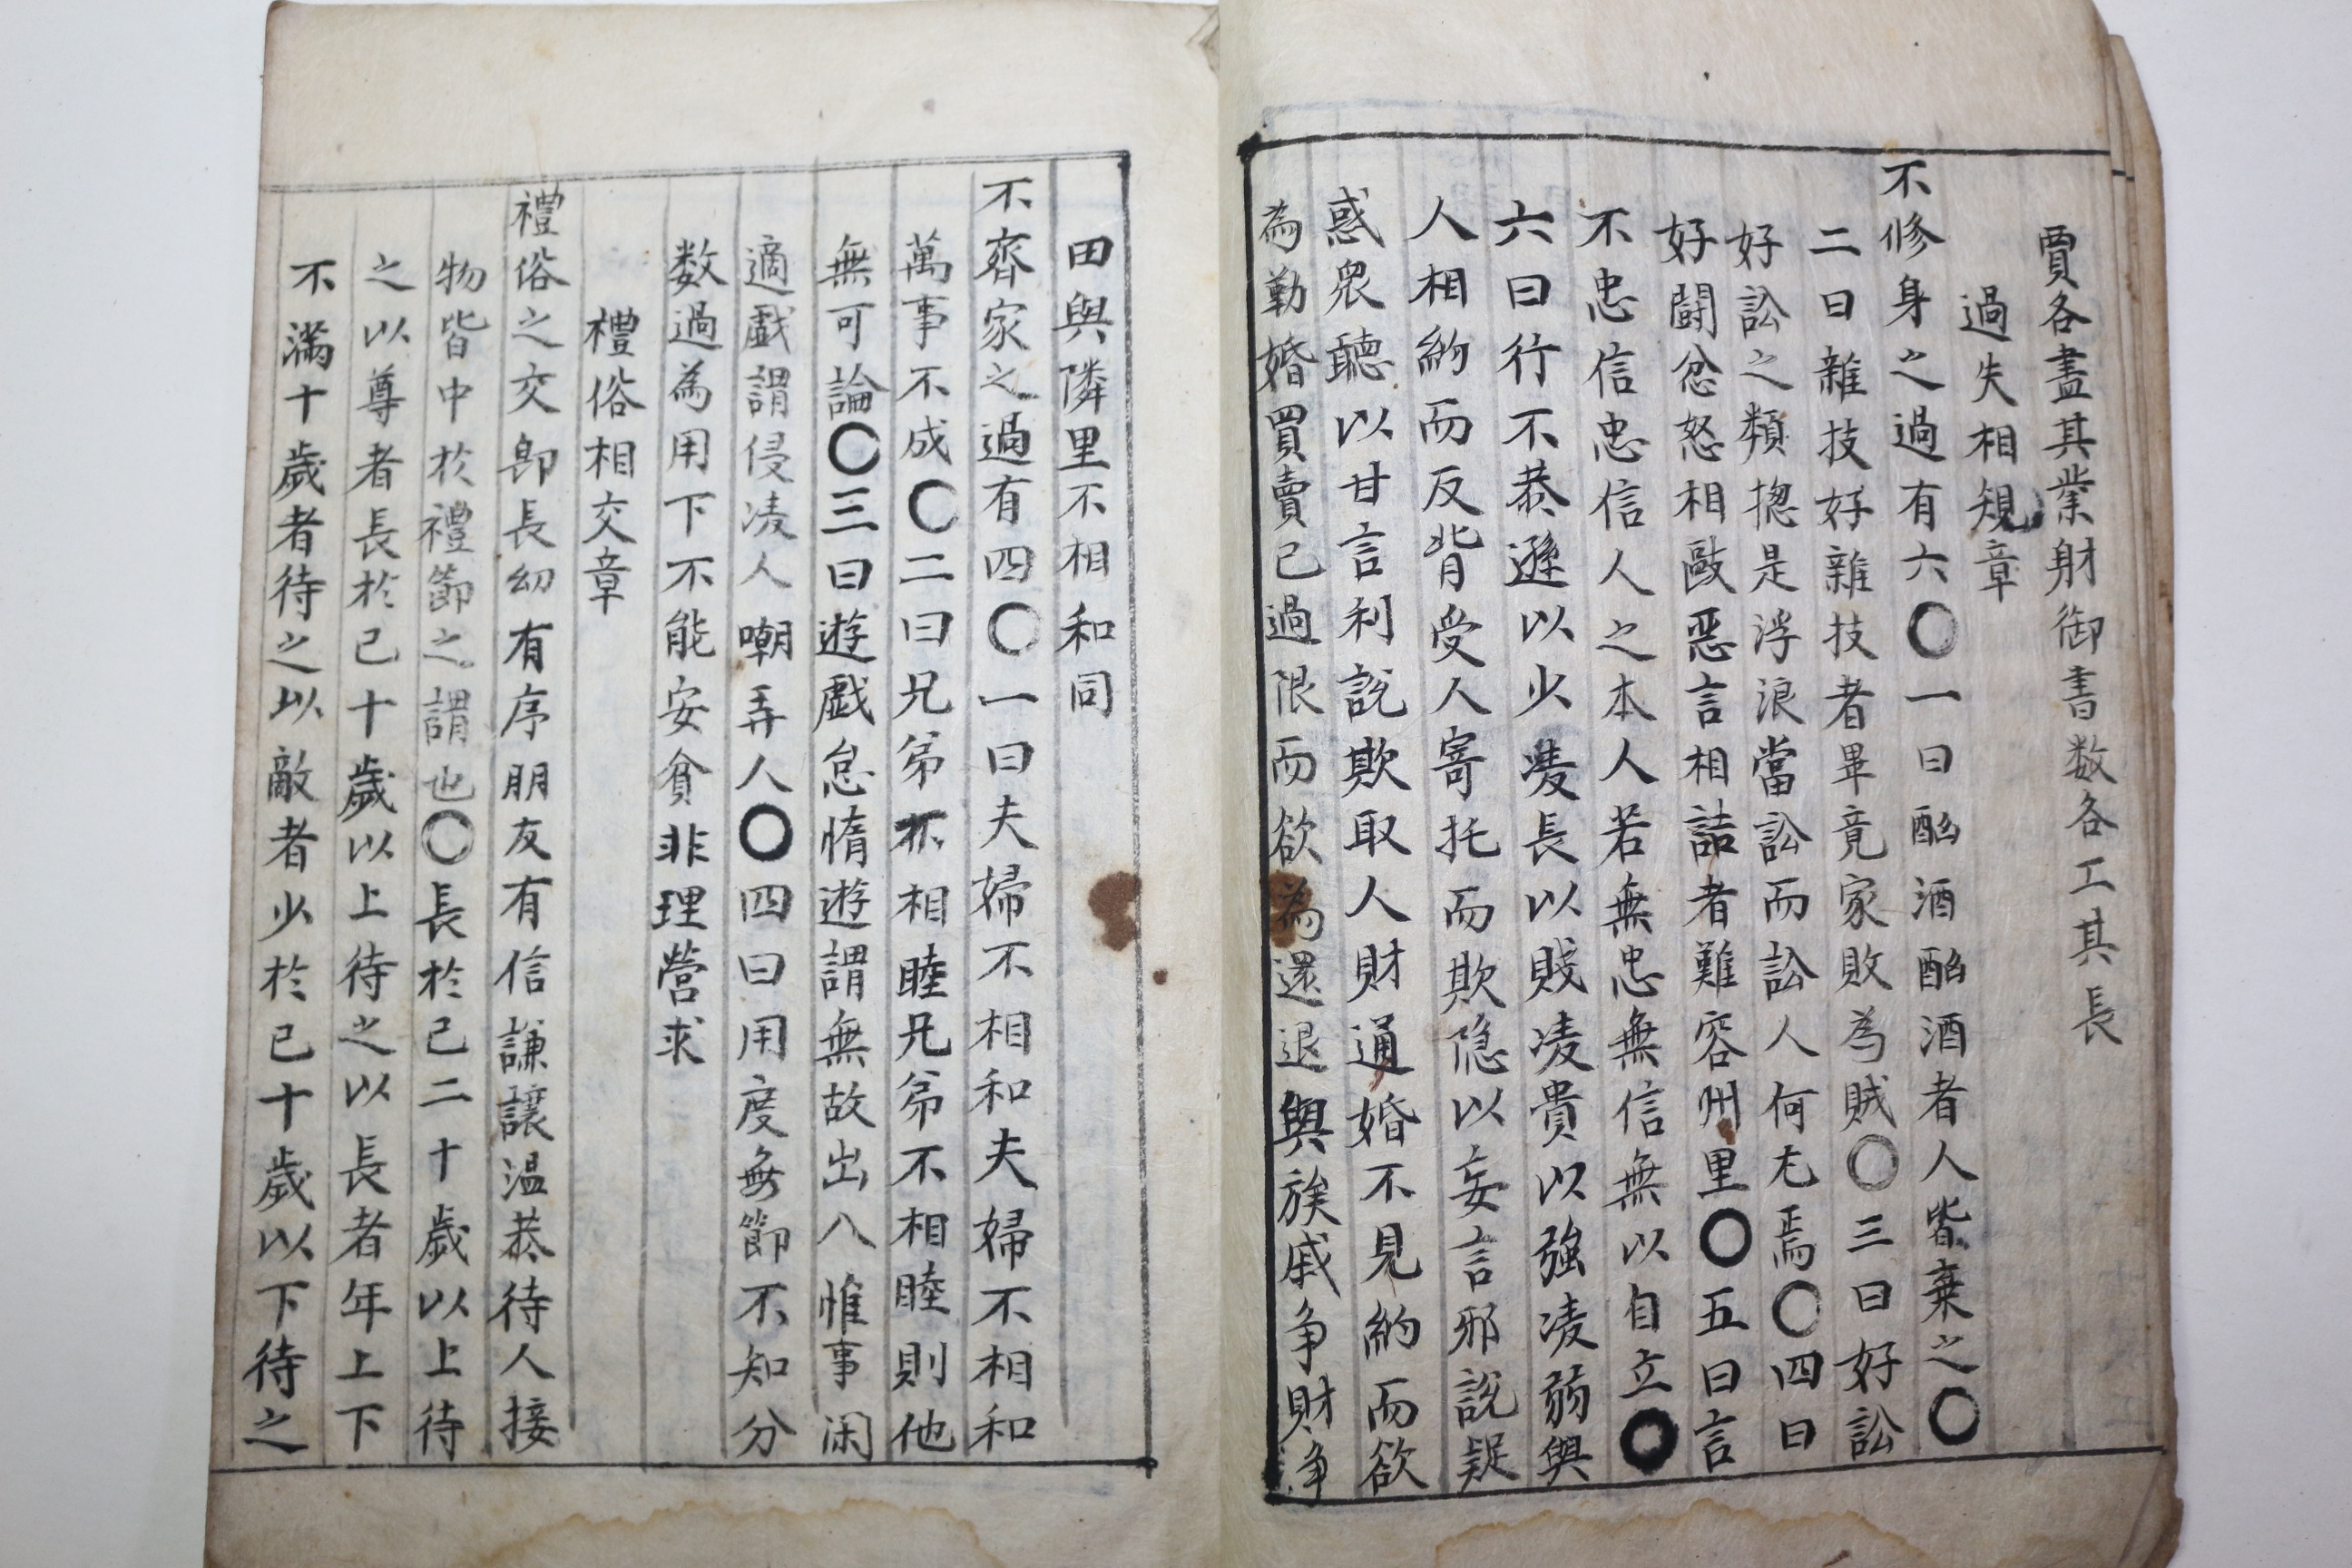 賈各盡其業射御書数各工其長
過失相規章
不修身之過有六〇一曰酗酒酗酒者人皆棄之〇
二曰雜技好雜技者畢竟家敗為賊〇三曰好訟
好訟之類摠是浮浪當訟而訟人何尤焉〇四曰
好鬪忿怒相敺惡言相詰者難容州里〇五曰言
不忠信忠信人之本人若無忠無信無以自立〇
六曰行不恭遜以少凌長以賤凌貴以強凌弱與
人相約而反背受人寄托而欺隐以妄言邪說疑
惑衆聽以甘言利說欺取人財通婚不見約而欲
為勤婚買賣已過限而欲為還退與族戚爭財爭
田與隣里不相和同
不齊家之過有四〇一曰夫婦不相和夫婦不相和
萬事不成〇二曰兄弟不相睦兄弟不相睦則他
無可論〇三曰遊戯怠惰遊謂無故出入惟事闲
適戯謂侵凌人嘲弄人〇四曰用度無節不知分
数過為用下不能安貧非理營求
禮俗相交章
禮俗之交卽長幼有序朋友有信謙讓温恭待人接
物皆中扵禮節之謂也〇長扵己二十歲以上待
之以尊者長扵己十歲以上待之以長者年上下
不滿十歲者待之以敵者少扵己十歲以下待之